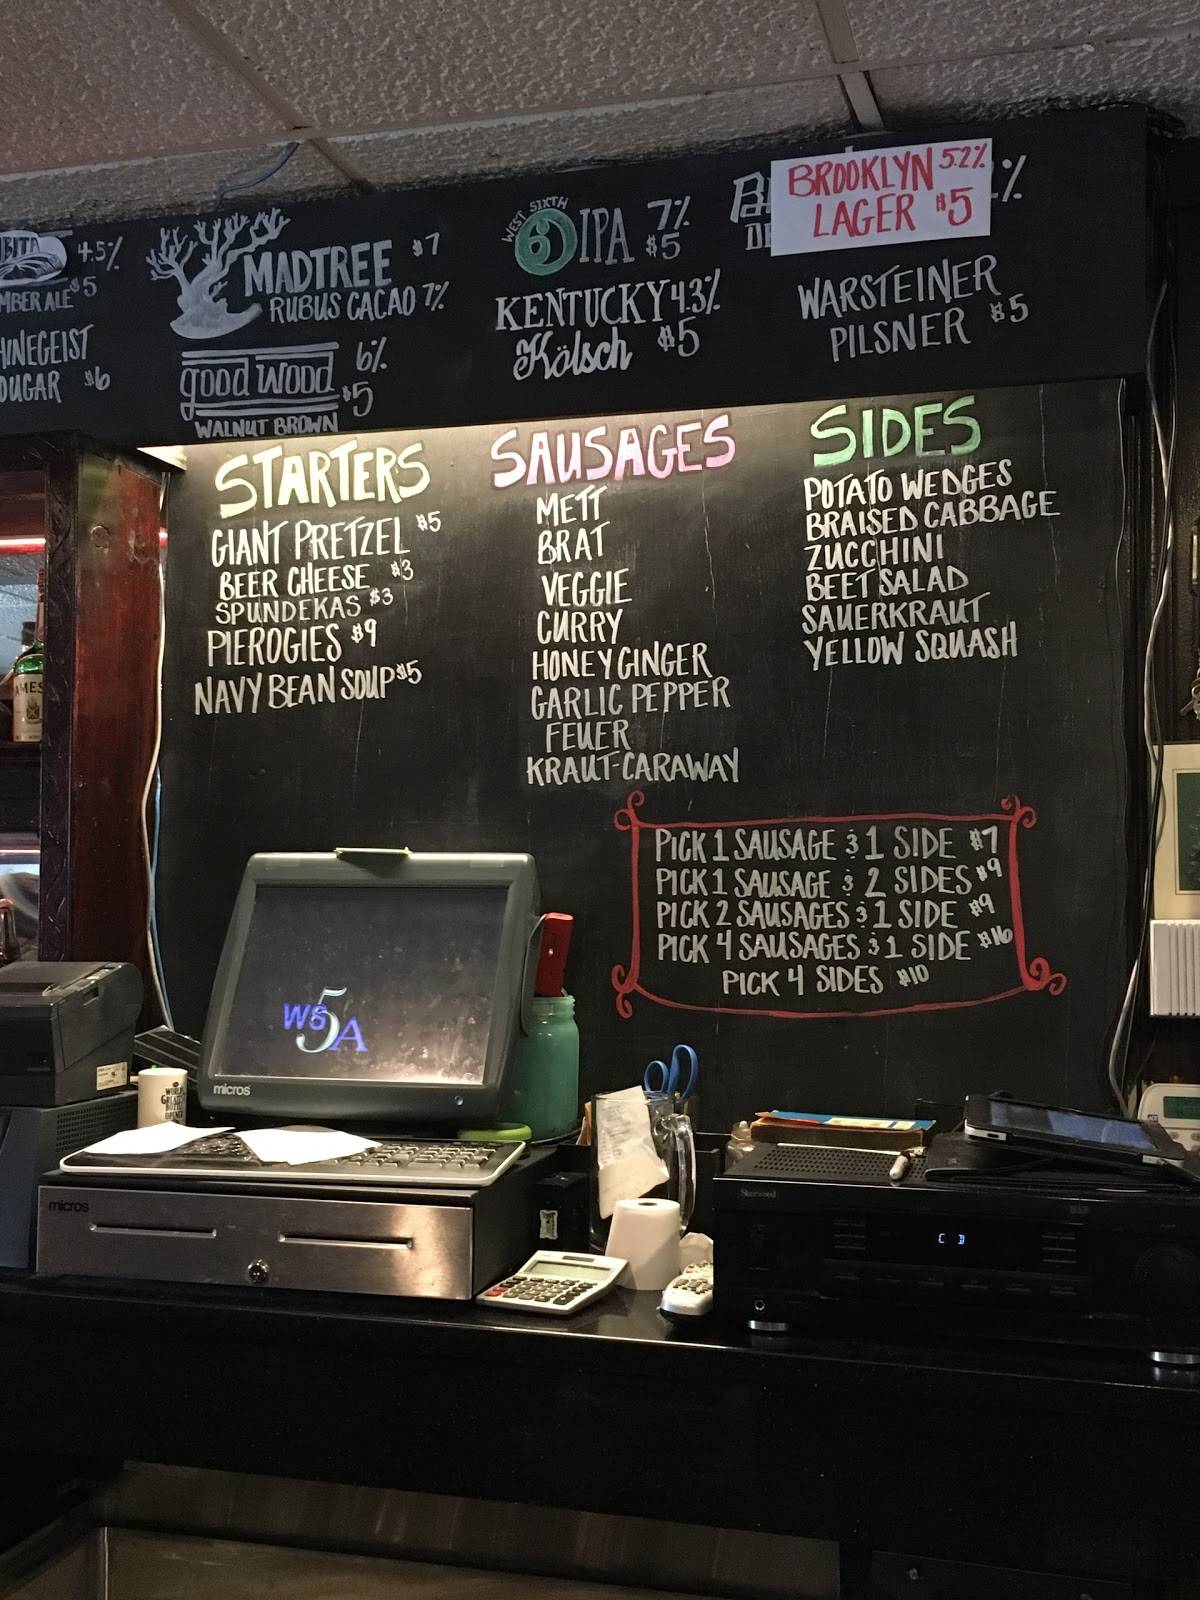 4.5%
$5
$6
MADTREE $7
RUBUS CACAO 7%
good wood 6%
$5
WALNUT BROWN
WEST SIXTH
6 IPA 7%
$5
KENTUCKY 4.3%
Kölsch $5
BROOKLYN 5.2%
LAGER $5
WARSTEINER
PILSNER $5
STARTERS
GIANT PRETZEL $5
BEER CHEESE $3
SPUNDEKAS $3
PIEROGIES $9
NAVY BEAN SOUP $5
SAUSAGES
METT
BRAT
VEGGIE
CURRY
HONEY GINGER
GARLIC PEPPER
FEUER
KRAUT-CARAWAY
SIDES
POTATO WEDGES
BRAISED CABBAGE
ZUCCHINI
BEET SALAD
SAUERKRAUT
YELLOW SQUASH
PICK 1 SAUSAGE & 1 SIDE $7
PICK 1 SAUSAGE & 2 SIDES $9
PICK 2 SAUSAGES & 1 SIDE $9
PICK 4 SAUSAGES & 1 SIDE $16
PICK 4 SIDES $10
WS5A
micros
micros
Sherwood
CD